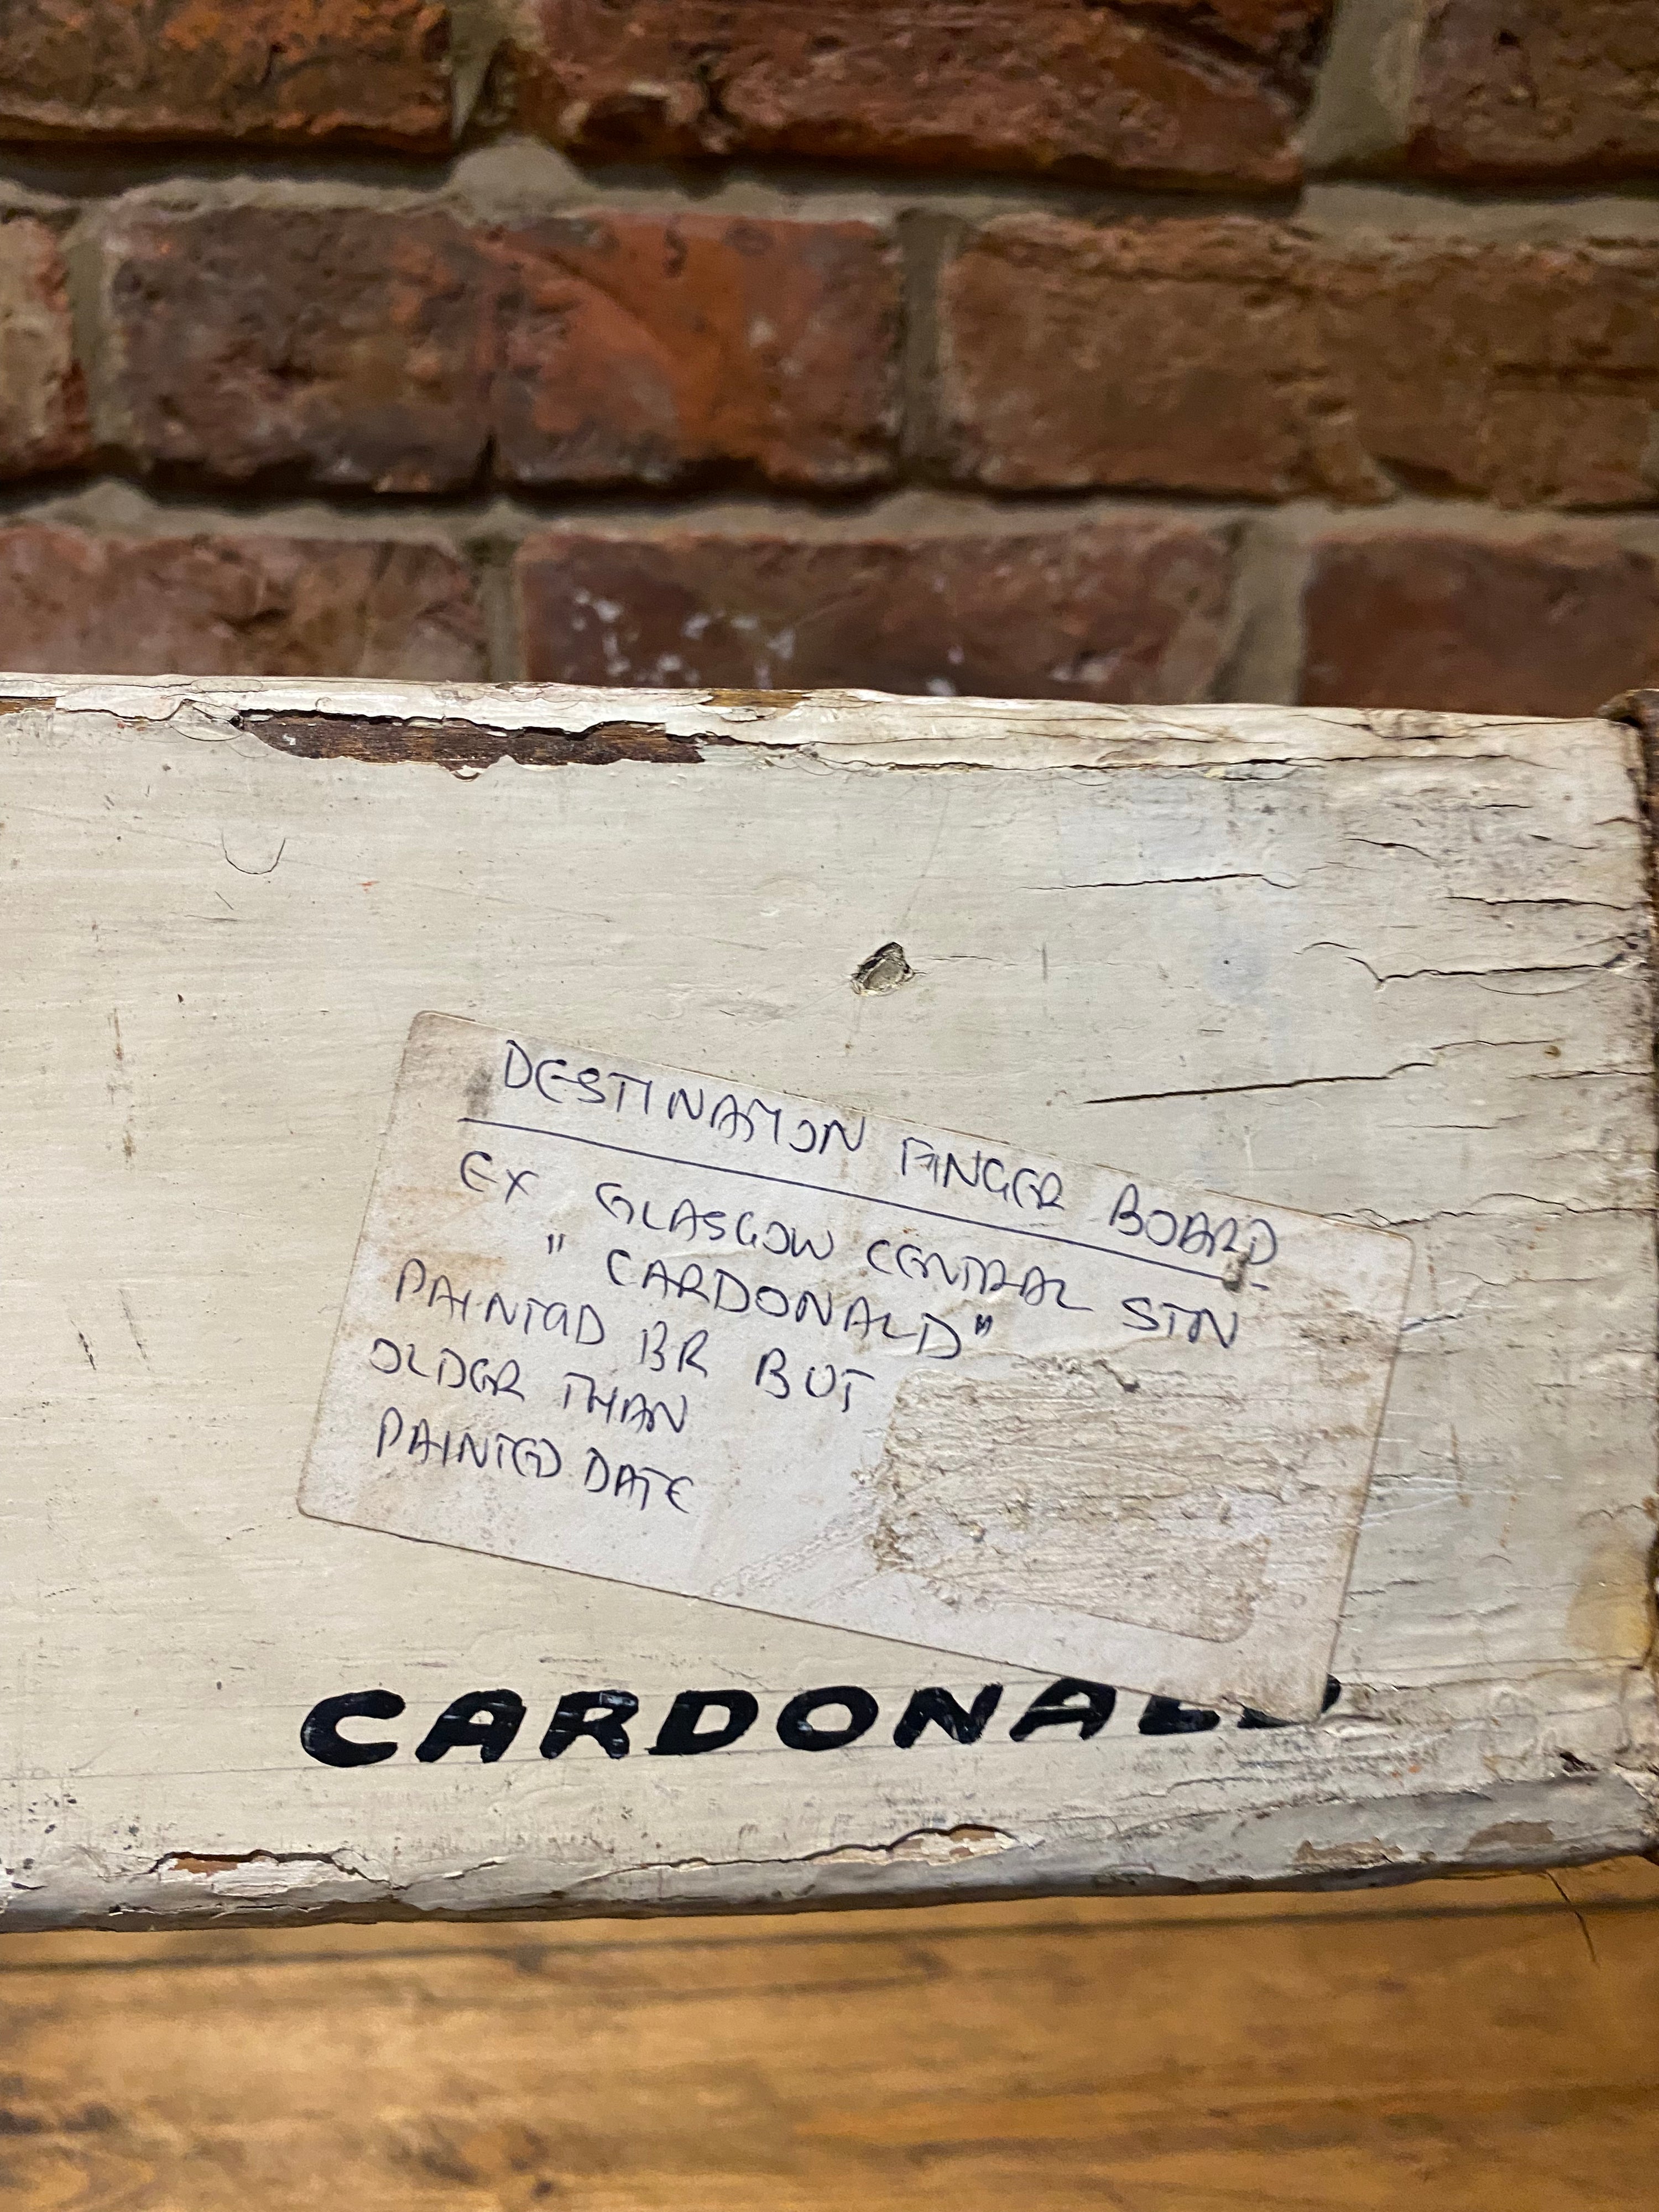 DESTINATION FINGER BOARD
EX GLASGOW CENTRAL STN
" CARDONALD"
PAINTED BR BUT
OLDER THAN
PAINTED DATE
CARDONALD